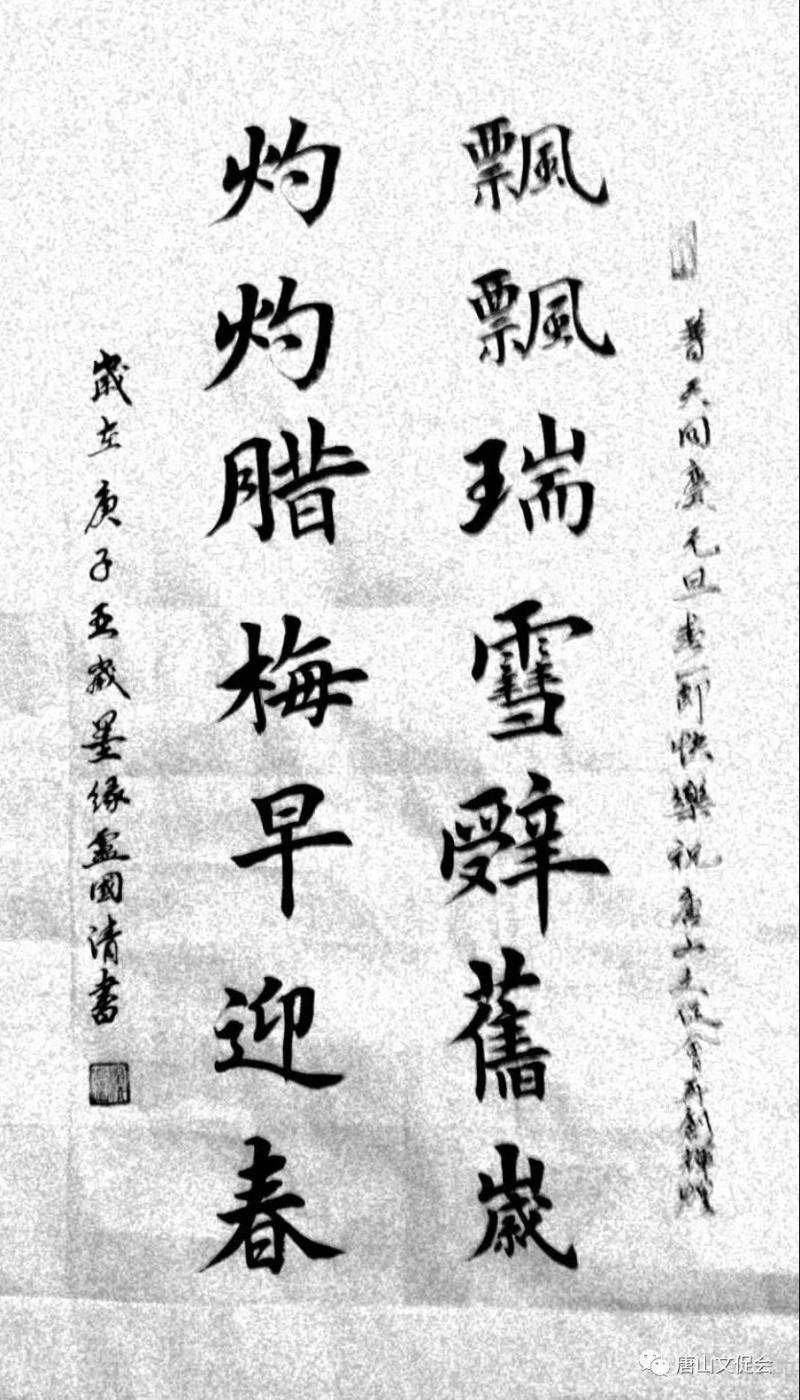 普天同慶元旦春節快樂祝唐山文促會再創輝煌
飄飄瑞雪辭舊歲
灼灼腊梅早迎春
歲在庚子五歲墨緣盧國清書
唐山文促会